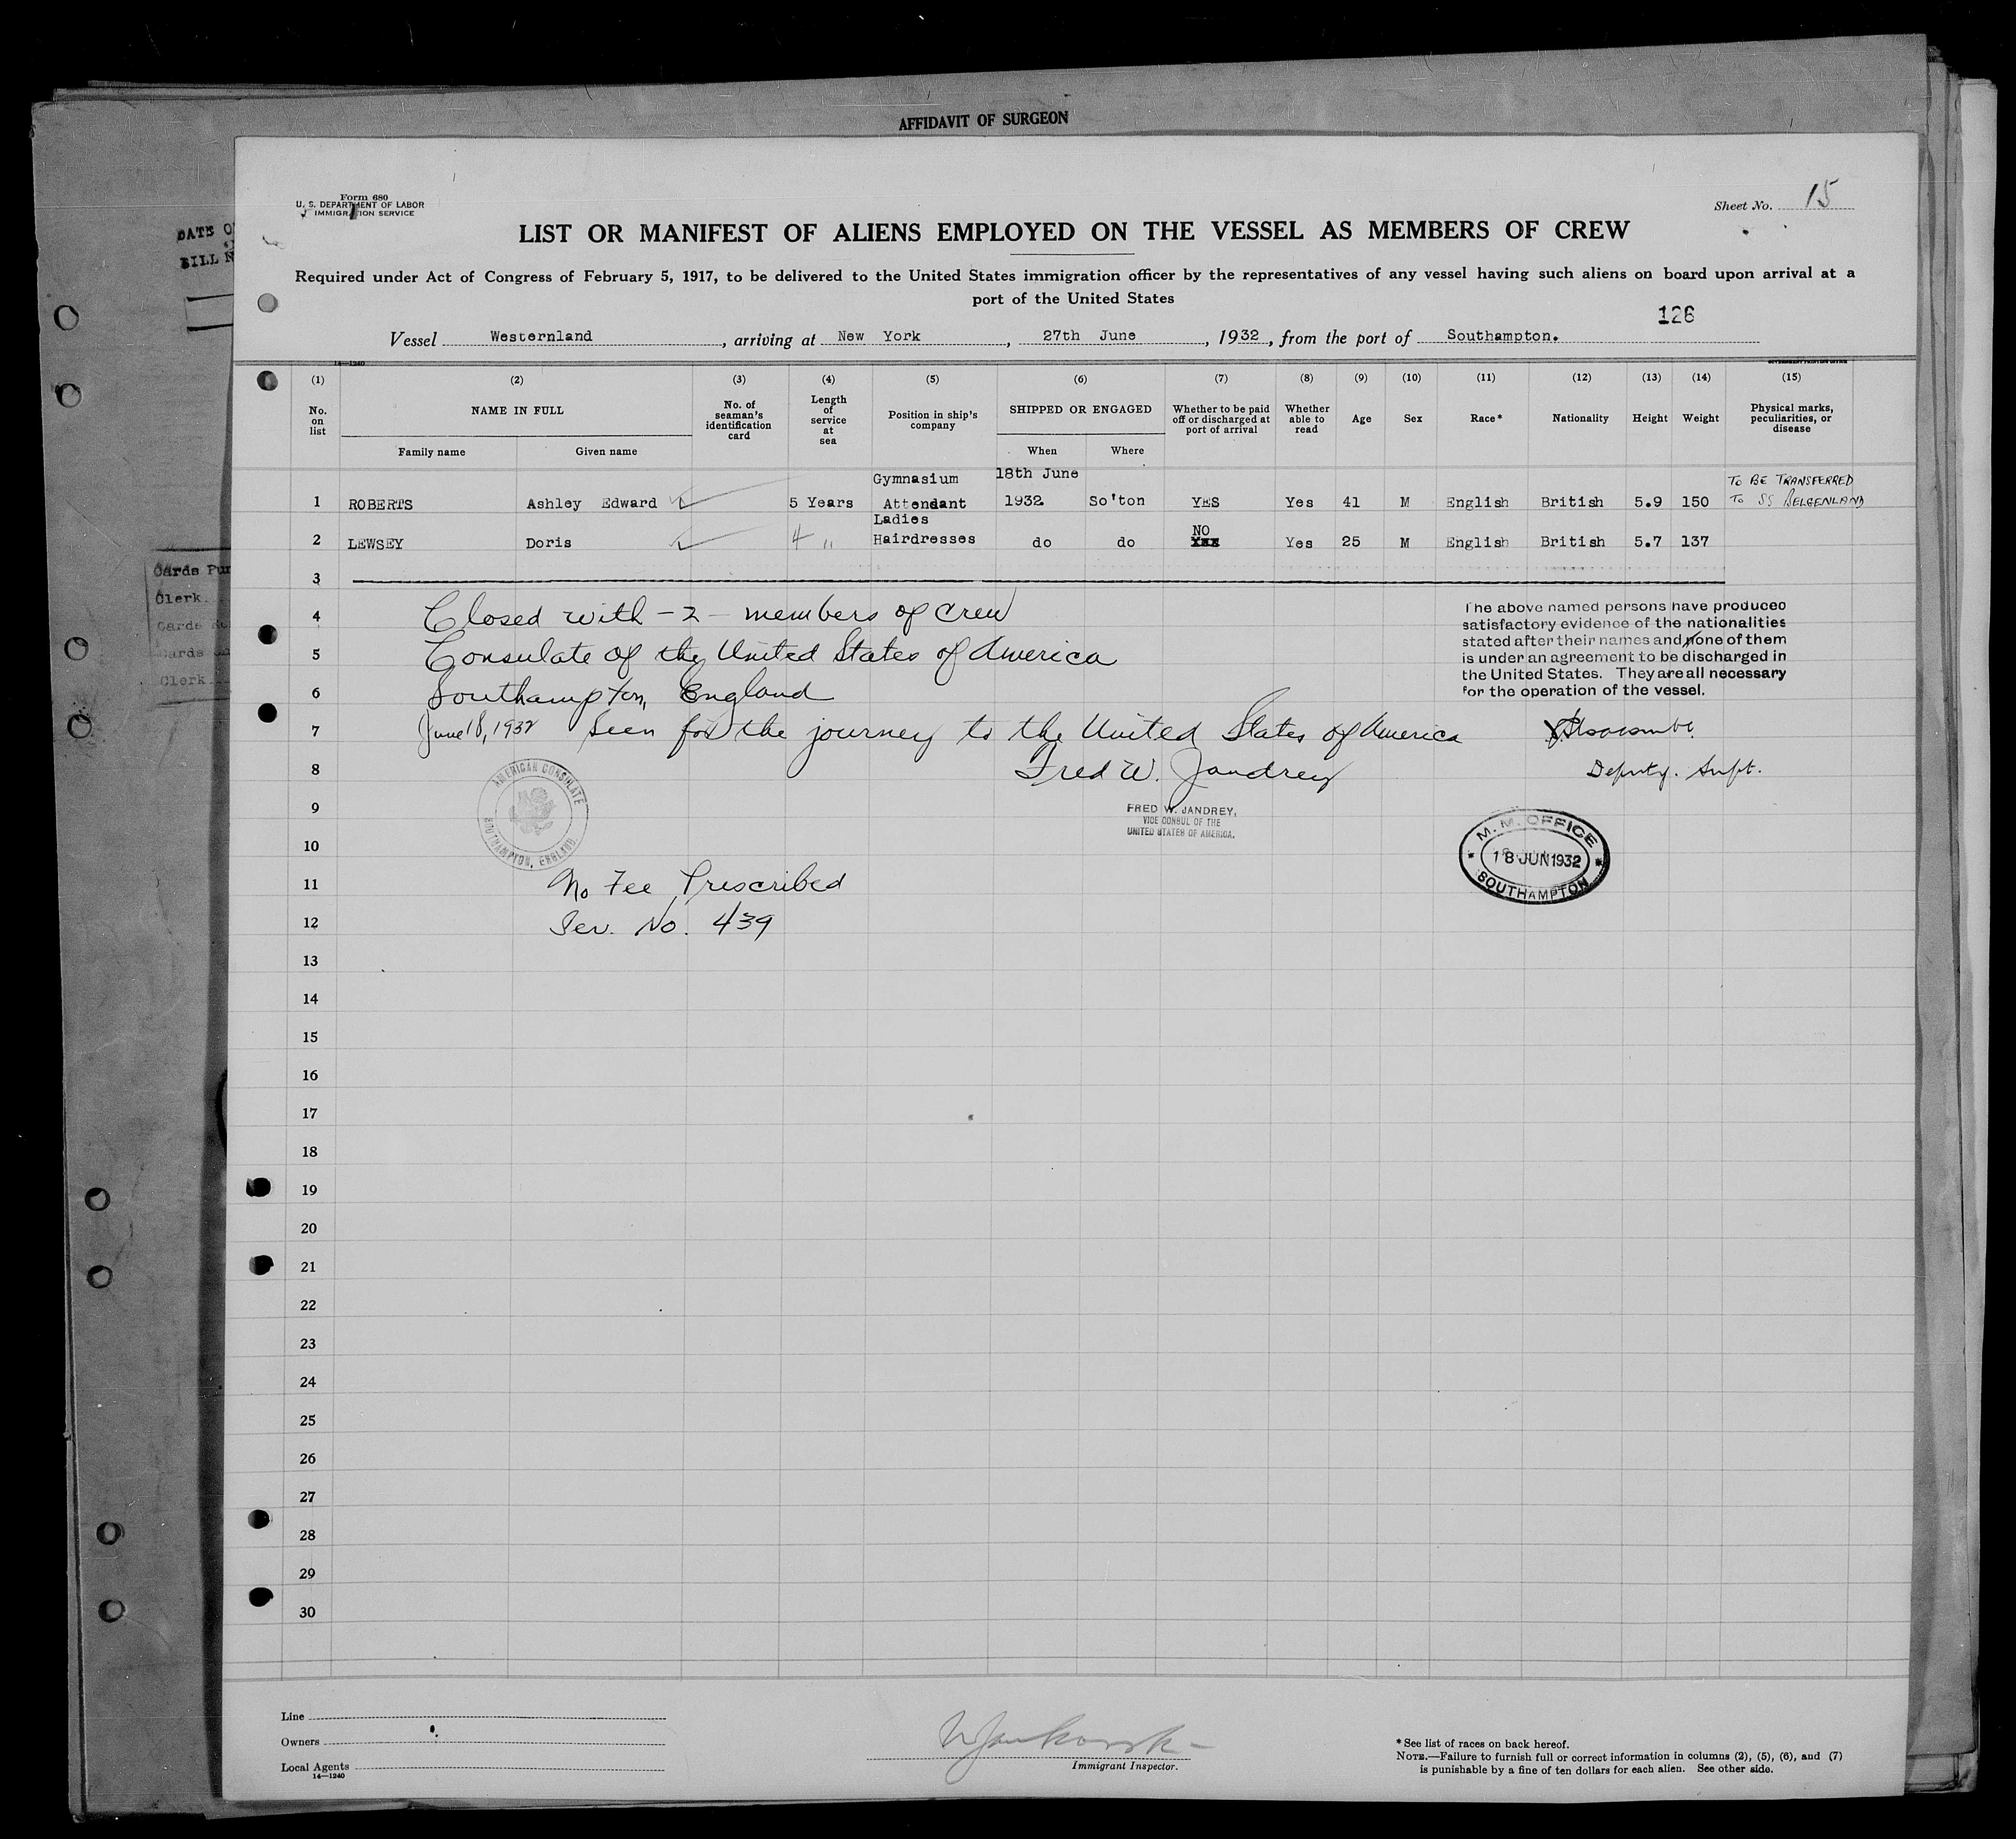 AFFIDAVIT OF SURGEON
Form 680
U. S. DEPARTMENT OF LABOR
IMMIGRATION SERVICE
Sheet No. 15
DATE O
BILL N
LIST OR MANIFEST OF ALIENS EMPLOYED ON THE VESSEL AS MEMBERS OF CREW
Required under Act of Congress of February 5, 1917, to be delivered to the United States immigration officer by the representatives of any vessel having such aliens on board upon arrival at a
port of the United States
126
Vessel Westernland, arriving at New York, 27th June, 1932, from the port of Southampton.
14—1240
GOVERNMENT PRINTING OFFICE
(1) (2) (3) (4) (5) (6) (7) (8) (9) (10) (11) (12) (13) (14) (15)
No. on list
NAME IN FULL
Family name Given name
No. of seaman's identification card
Length of service at sea
Position in ship's company
SHIPPED OR ENGAGED
When Where
Whether to be paid off or discharged at port of arrival
Whether able to read
Age
Sex
Race*
Nationality
Height
Weight
Physical marks, peculiarities, or disease
Gymnasium 18th June TO BE TRANSFERRED
1 ROBERTS Ashley Edward 5 Years Attendant 1932 So'ton YES Yes 41 M English British 5.9 150 TO SS BELGENLAND
Ladies NO
2 LEWSEY Doris 4 " Hairdresses do do Yes 25 M English British 5.7 137
3
4 Closed with - 2 - members of crew
5 Consulate of the United States of America
6 Southampton, England
7 June 18, 1932 Seen for the journey to the United States of America
8 Fred W. Jandrey
The above named persons have produced
satisfactory evidence of the nationalities
stated after their names and none of them
is under an agreement to be discharged in
the United States. They are all necessary
for the operation of the vessel.
Deputy. Supt.
AMERICAN CONSULATE
SOUTHAMPTON, ENGLAND.
FRED W. JANDREY,
VICE CONSUL OF THE
UNITED STATES OF AMERICA.
M. M. OFFICE
18 JUN 1932
SOUTHAMPTON
9
10
11 No Fee Prescribed
12 Ser. No. 439
13
14
15
16
17
18
19
20
21
22
23
24
25
26
27
28
29
30
Cards Pu
Clerk
Cards
Cards
Clerk
Line
Owners
Local Agents
14—1240
Immigrant Inspector.
* See list of races on back hereof.
NOTE.—Failure to furnish full or correct information in columns (2), (5), (6), and (7)
is punishable by a fine of ten dollars for each alien. See other side.